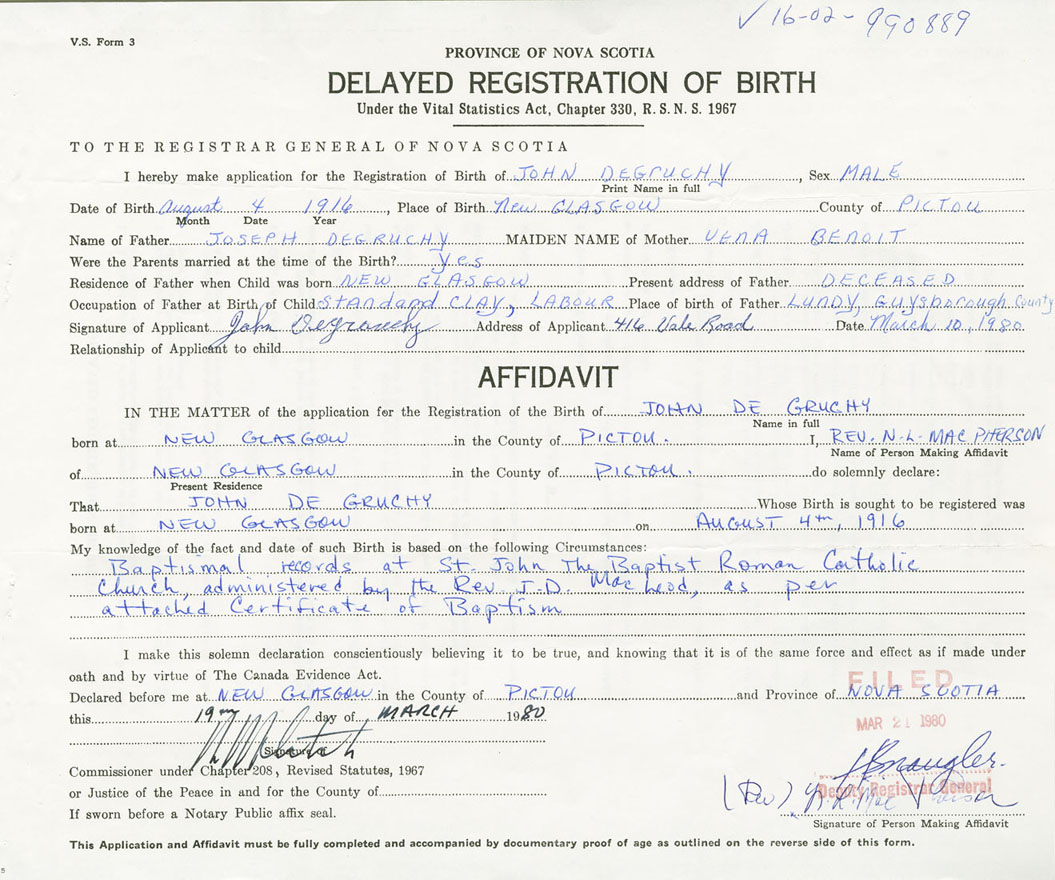 ✓ 16-02-990889
V.S. Form 3
PROVINCE OF NOVA SCOTIA
DELAYED REGISTRATION OF BIRTH
Under the Vital Statistics Act, Chapter 330, R.S.N.S. 1967
TO THE REGISTRAR GENERAL OF NOVA SCOTIA
I hereby make application for the Registration of Birth of JOHN DEGRUCHY, Sex MALE
Print Name in full
Date of Birth August 4 1916, Place of Birth New GLASGOW County of PICTOU
Month Date Year
Name of Father JOSEPH DEGRUCHY MAIDEN NAME of Mother VENA BENOIT
Were the Parents married at the time of the Birth? yes
Residence of Father when Child was born NEW GLASGOW Present address of Father DECEASED
Occupation of Father at Birth of Child Standard CLAY, LABOUR Place of birth of Father LUNDY, Guysborough County
Signature of Applicant John Degrouchy Address of Applicant 416 Vale Road Date March 10, 1980
Relationship of Applicant to child
AFFIDAVIT
IN THE MATTER of the application for the Registration of the Birth of JOHN DE GRUCHY
Name in full
born at NEW GLASGOW in the County of PICTOU. I, REV. N-L-MACPHERSON
Name of Person Making Affidavit
of NEW GLASGOW in the County of PICTOU. do solemnly declare:
Present Residence
That JOHN DE GRUCHY Whose Birth is sought to be registered was
born at NEW GLASGOW on AUGUST 4TH, 1916
My knowledge of the fact and date of such Birth is based on the following Circumstances:
Baptismal records at St. John The Baptist Roman Catholic
Church, administered by the Rev. J.D. MacLeod, as per
attached Certificate of Baptism
I make this solemn declaration conscientiously believing it to be true, and knowing that it is of the same force and effect as if made under
oath and by virtue of The Canada Evidence Act.
FILED
Declared before me at NEW GLASGOW in the County of PICTOU and Province of NOVA SCOTIA
this 19th day of MARCH 1980
MAR 21 1980
Signature of
Commissioner under Chapter 208, Revised Statutes, 1967
Deputy Registrar General
or Justice of the Peace in and for the County of
(Rev)
If sworn before a Notary Public affix seal.
Signature of Person Making Affidavit
This Application and Affidavit must be fully completed and accompanied by documentary proof of age as outlined on the reverse side of this form.